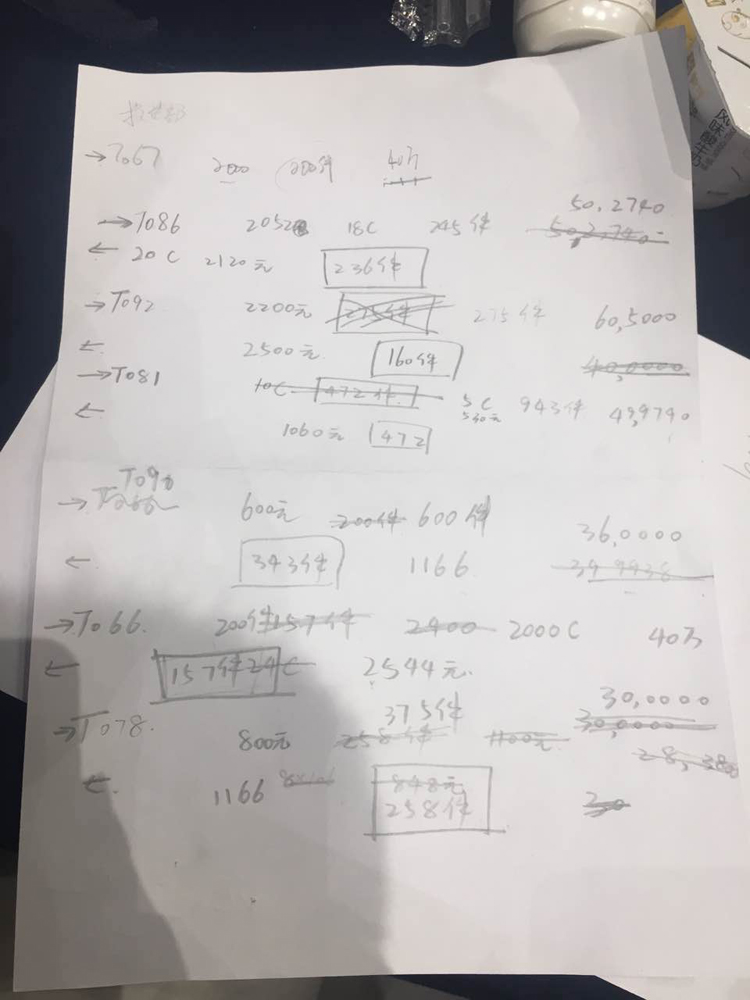 →T067 2000 200件 40万
50,2740
→T086 2052 18C 245件 50,2740
← 20C 2120元 236件
→T092 2200元 275件 275件 60,5000
← 2500元 160件 40,0000
→T081 10C 472件 5C 943件 49,9790
530元
← 1060元 472
T096
→T066 600元 200件 600件 36,0000
← 343件 1166 39 9938
→T066. 200件 157件 2400 2000C 40万
← 157件 24C 2544元.
375件 30,0000
→T078. 800元 258件 1100元 30,0000
28,380
← 1166 848元
258件
风味酸牛奶